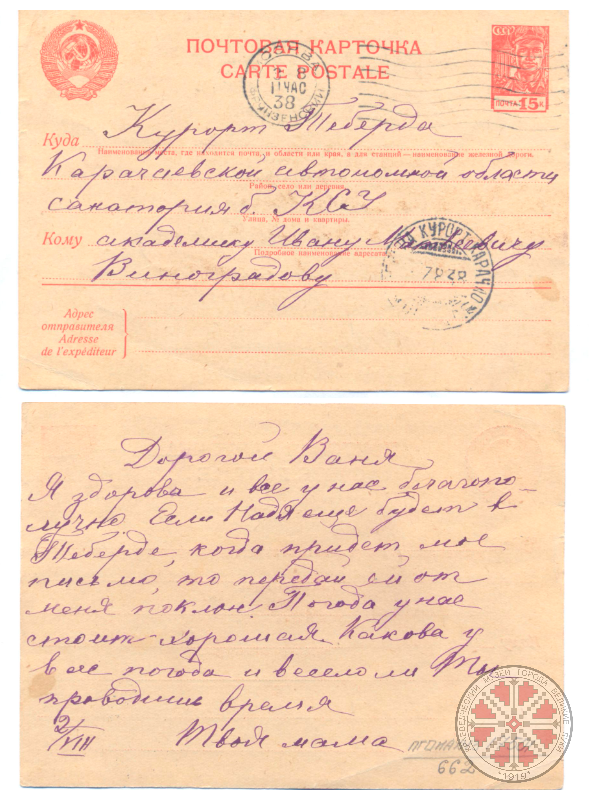 СССР
ПОЧТОВАЯ КАРТОЧКА
CARTE POSTALE
ПОЧТА 15 К.
МОСКВА
2 8
11 ЧАС
38
Куда Курорт Теберда
Наименование места, где находится почта, и области или края, а для станций — наименование железной дороги.
Карачаевской автономной области
Район, село или деревня.
санатория б. КСУ
Улица, № дома и квартиры.
Кому академику Ивану Матвеевичу
Подробное наименование адресата
Виноградову
КУРОРТ
7 8 38
Адрес
отправителя
Adresse
de l'expéditeur
Дорогой Ваня
Я здорова и все у нас благопо-
лучно. Если Надя еще будет в
Теберде, когда придет мое
письмо, то передай ей от
меня поклон. Погода у нас
стоит хорошая. Какова у
вас погода и весело ли Ты
проводишь время
2/VIII Твоя мама
662
КРАЕВЕДЧЕСКИЙ МУЗЕЙ ГОРОДА ВЕЛИКИЕ ЛУКИ
1919